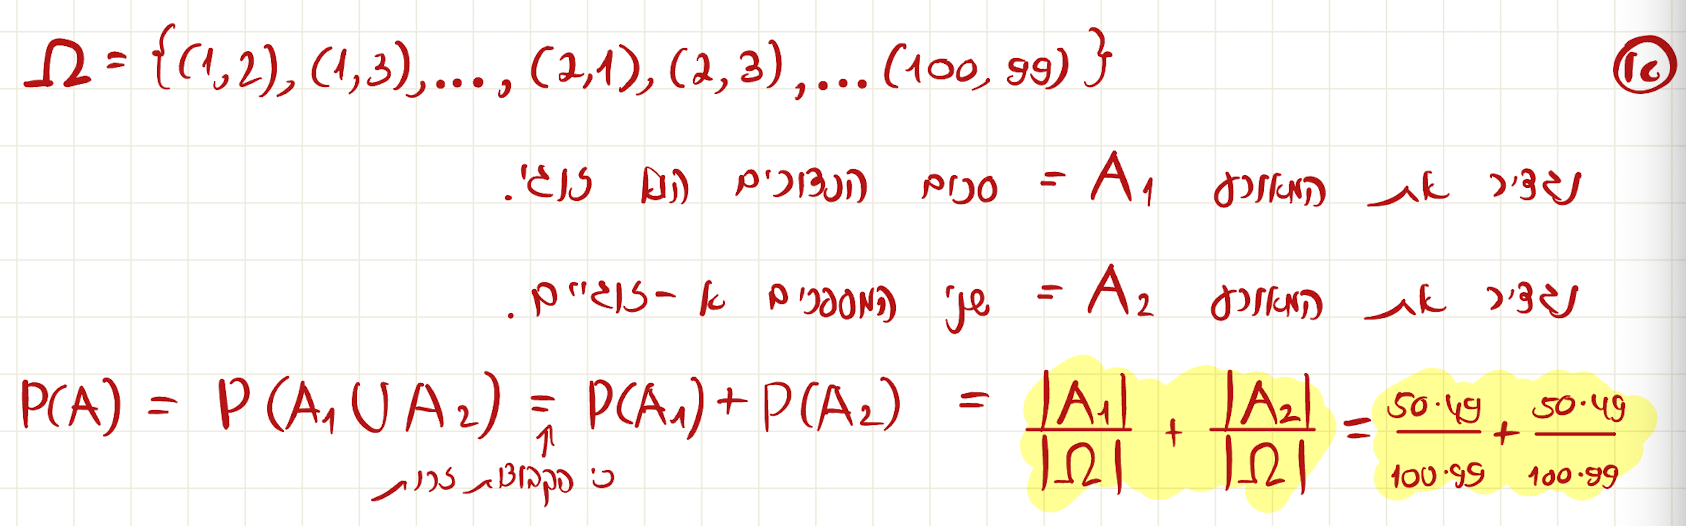 Ω = {(1,2), (1,3),..., (2,1), (2,3),... (100, 99)} א
נגדיר את המאורע A₁ = סכום הכדורים הוא זוגי.
נגדיר את המאורע A₂ = שני המספרים א - זוגיים.
P(A) = P(A₁ ∪ A₂) = P(A₁) + P(A₂) = |A₁|/|Ω| + |A₂|/|Ω| = 50·49/100·99 + 50·49/100·99
↑
כי הקבוצות זרות